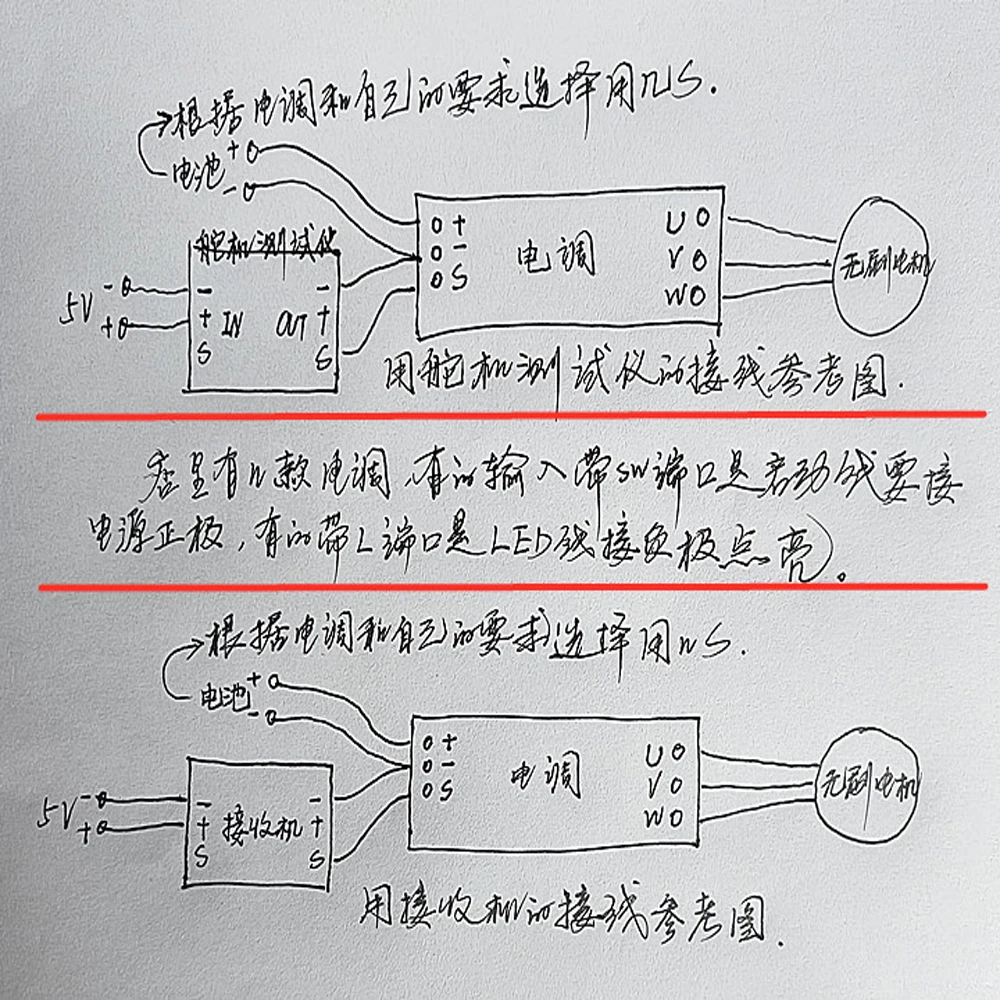 根据电调和自己的要求选择用nS.
电池 + -
舵机测试仪
5V - +
- + S IN OUT - + S
+ - S 电调 U V W
无刷电机
用舵机测试仪的接线参考图.
店里有n款电调,有的输入带SW端口是启动线要接
电源正极,有的带L端口是LED线接负极点亮)。
根据电调和自己的要求选择用nS.
电池 + -
5V - +
- + S 接收机 - + S
+ - S 电调 U V W
无刷电机
用接收机的接线参考图.